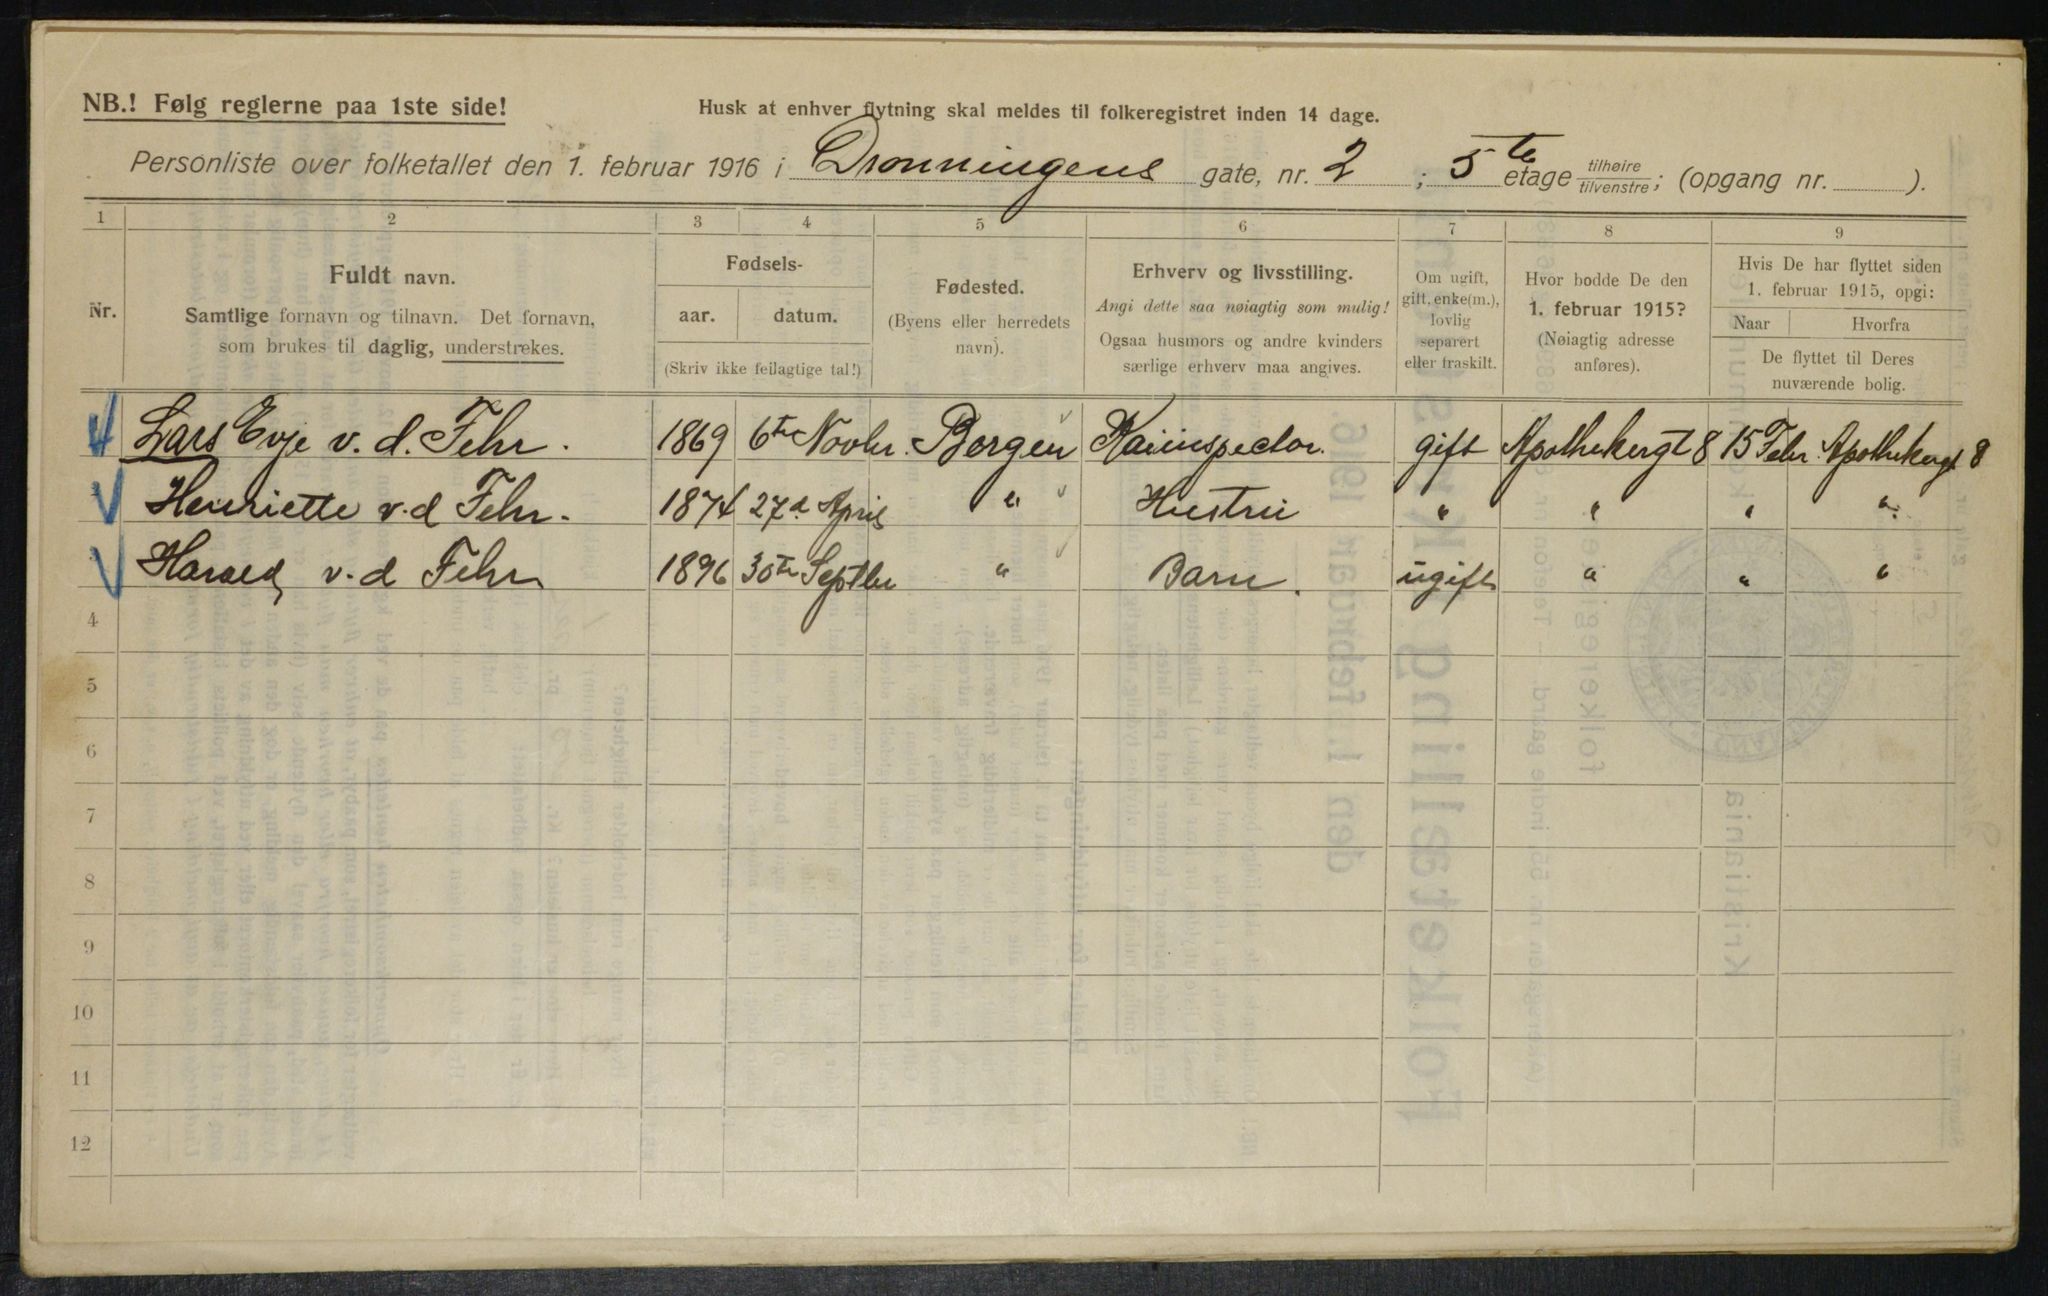 NB.! Følg reglerne paa 1ste side!
Husk at enhver flytning skal meldes til folkeregistret inden 14 dage.
Personliste over folketallet den 1. februar 1916 i Dronningens gate, nr. 2 ; 5te etage tilhøire/tilvenstre; (opgang nr. ).
1 2 3 4 5 6 7 8 9
Nr.
Fuldt navn.
Samtlige fornavn og tilnavn. Det fornavn,
som brukes til daglig, understrekes.
Fødsels-
aar. datum.
(Skriv ikke feilagtige tal!)
Fødested.
(Byens eller herredets
navn).
Erhverv og livsstilling.
Angi dette saa nøiagtig som mulig!
Ogsaa husmors og andre kvinders
særlige erhverv maa angives.
Om ugift,
gift, enke(m.),
lovlig
separert
eller fraskilt.
Hvor bodde De den
1. februar 1915?
(Nøiagtig adresse
anføres).
Hvis De har flyttet siden
1. februar 1915, opgi:
Naar Hvorfra
De flyttet til Deres
nuværende bolig.
Lars Evje v. d. Fehr. 1869 6te Novbr. Bergen Kaiinspector. gift Apothekergt 8 15 Febr. Apothekergt 8
Henriette v. d Fehr. 1874 27d April " Hustru " " " "
Harald v. d Fehr 1896 30te Septbr " Barn. ugift " " "
4
5
6
7
8
9
10
11
12